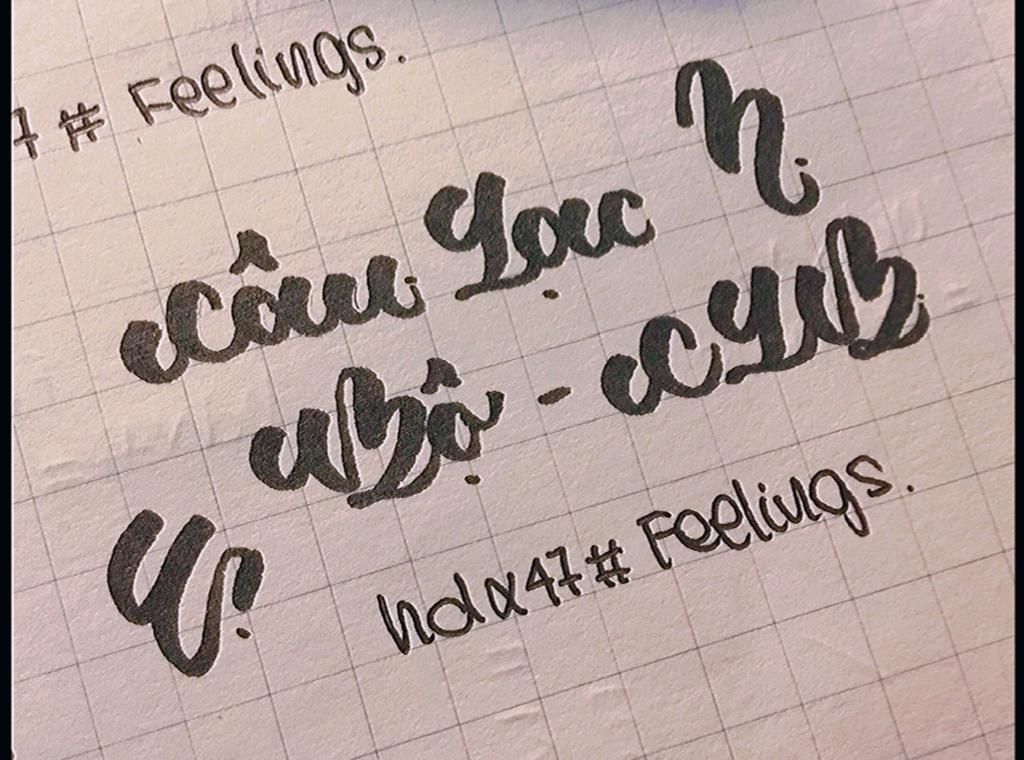 7 # Feelings.
Câu Lạc
Bộ - CLB
hdx47# Feelings.